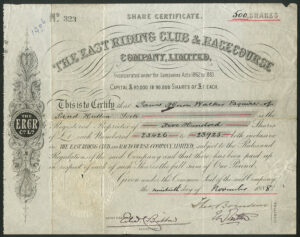 SHARE CERTIFICATE.
500 SHARES
No. 323
THE EAST RIDING CLUB & RACECOURSE
COMPANY, LIMITED.
Incorporated under the Companies Acts 1862 to 1883.
CAPITAL £90,000 IN 90,000 SHARES OF £1 EACH.
This is to Certify that Esquire of
Sand Hutton York is the
Registered Proprietor of Five Hundred Shares
Numbered 23426 to 23925 inclusive
in THE EAST RIDING CLUB AND RACECOURSE COMPANY, LIMITED, subject to the Rules and
Regulations of the said Company and that there has been paid up
in respect of each of such Shares the full sum of One Pound.
Given under the Common Seal of the said Company
the day of November 1888
THE
ERCR
Co. Ld.